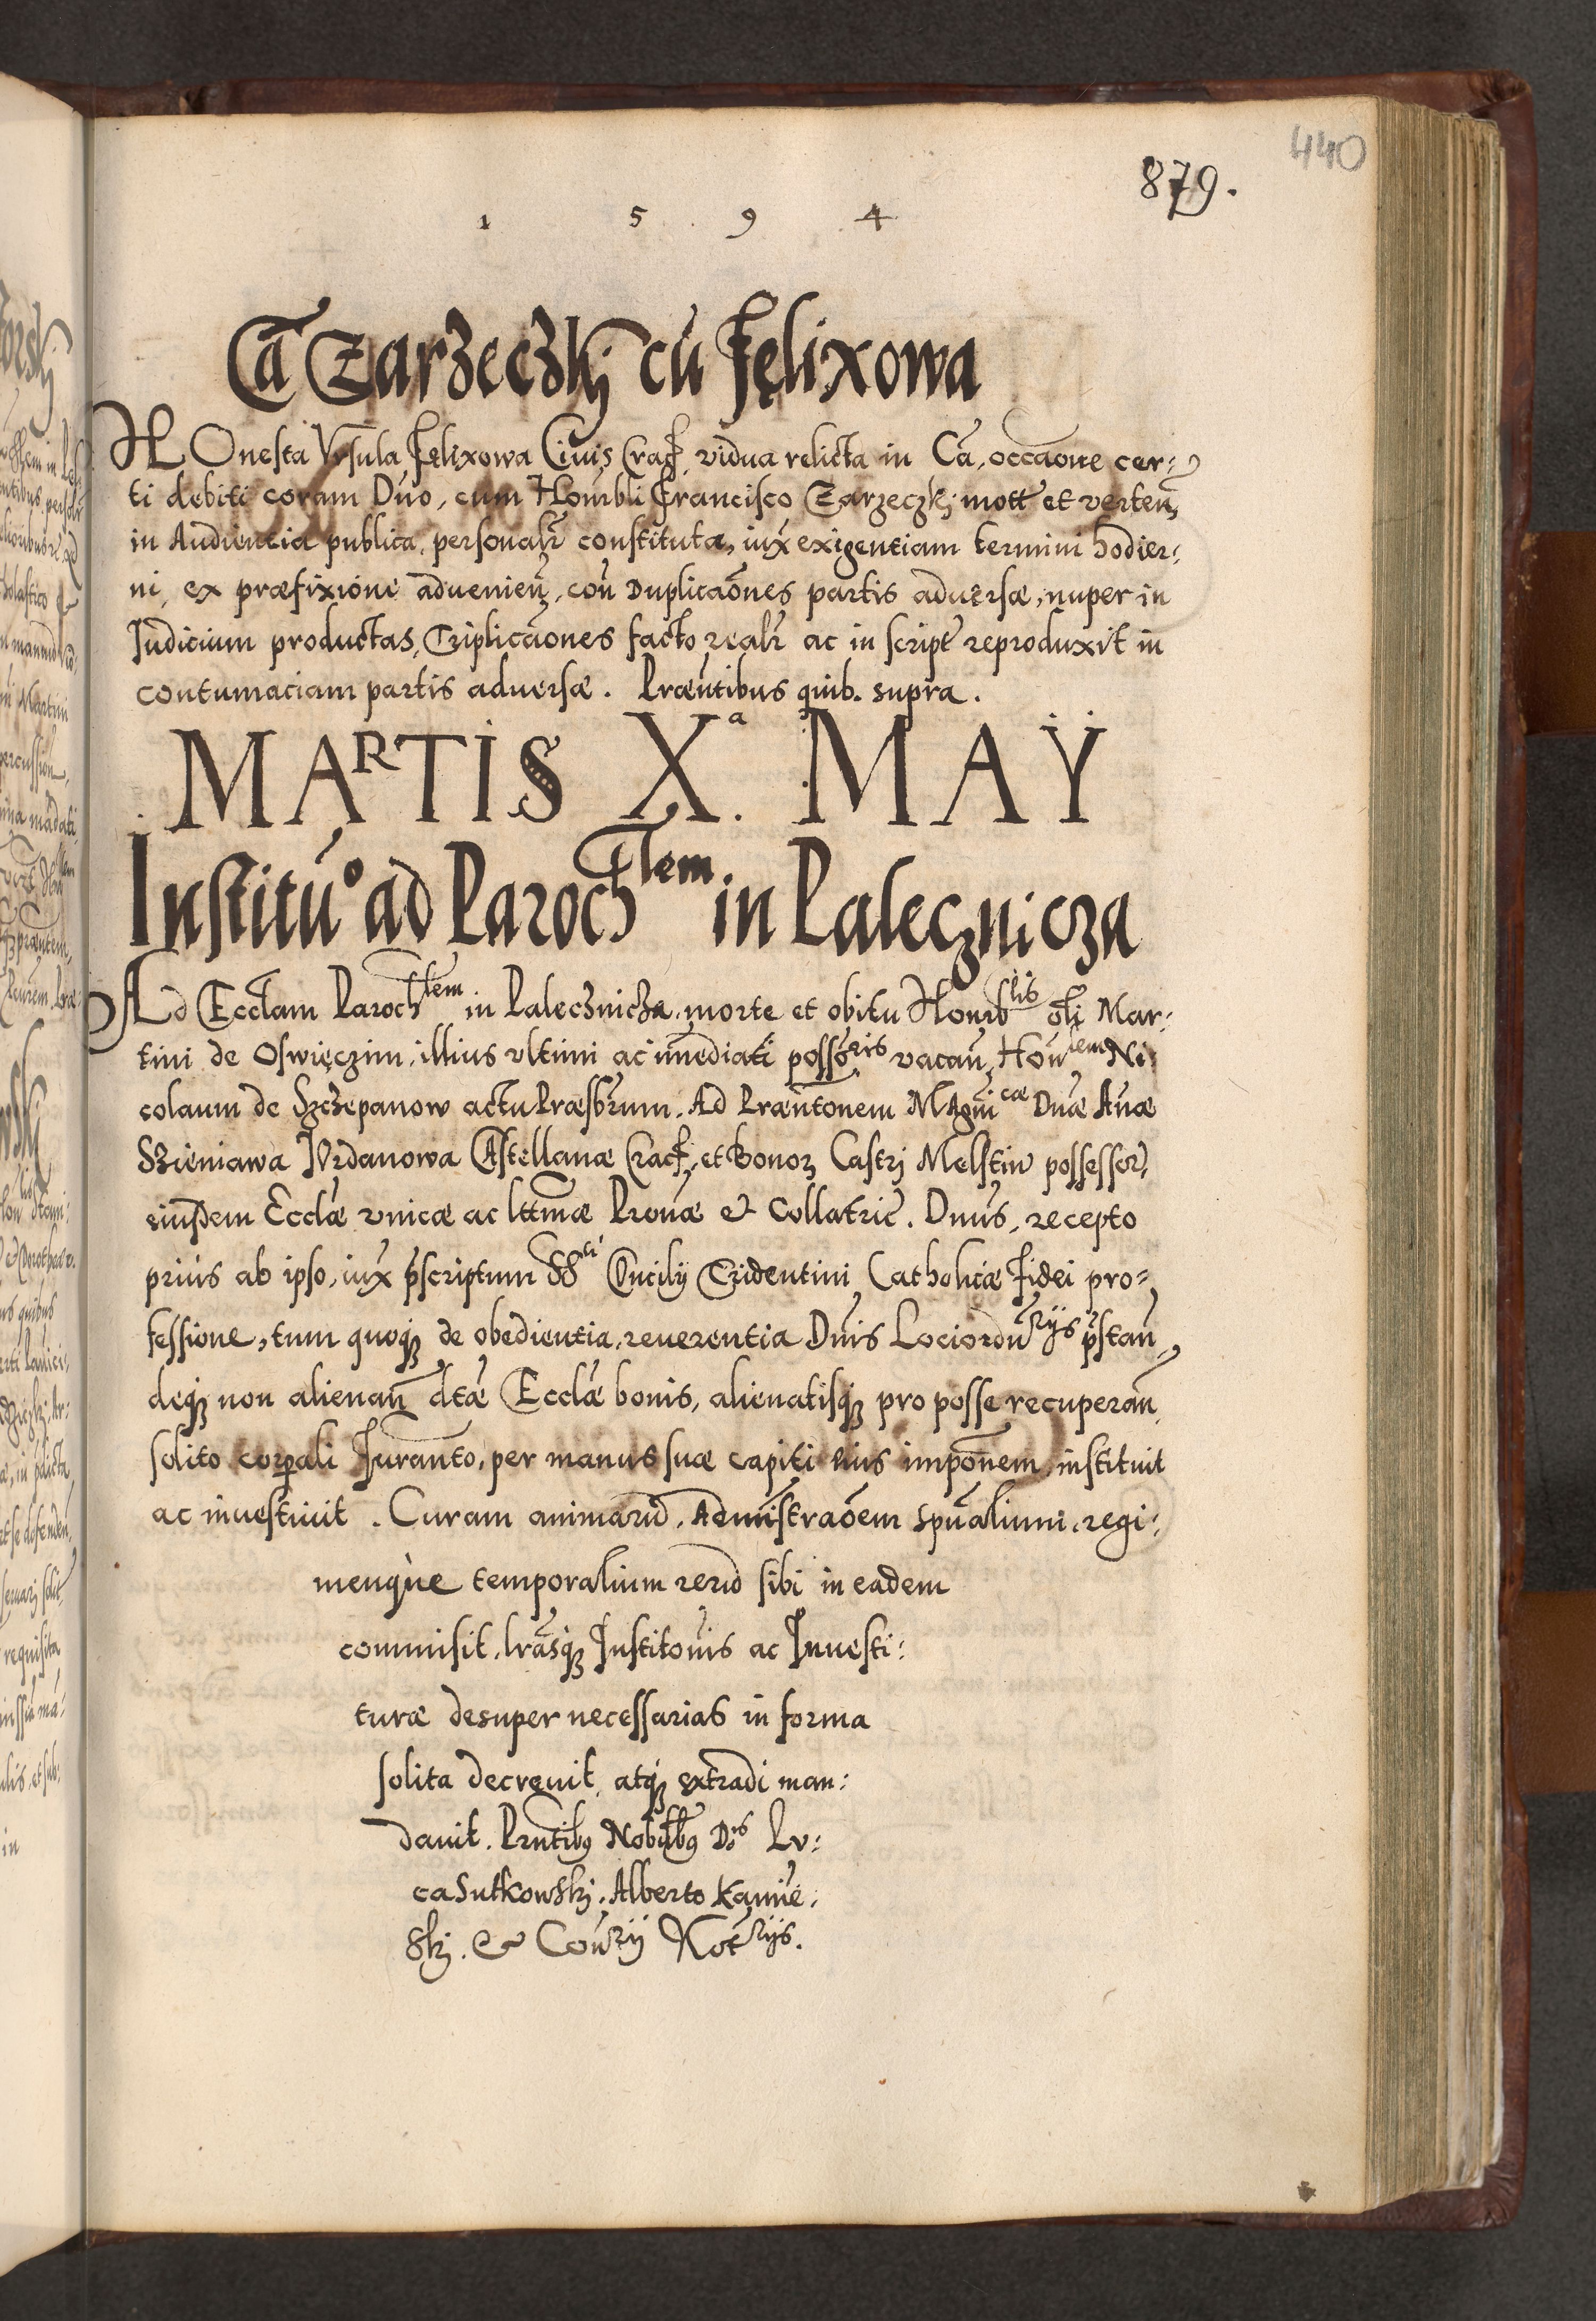 440
879.
1 5 9 4
Cã Zarzeczkj cũ Fęlixowa
HOnesta Vrsula Fęlixowa Ciuis Crac̃, vidua relicta in Cã, occãone cer:
ti debiti coram Dño, cum Honrbli Francisco Zarzeczkj mot̃t et verteñ
in Audientia publica, personalr̃ constituta, iux̃ exigentiam termini hodier:
ni, ex præfixione aduenieñ, coñ Duplicaões partis aduersæ, nuper in
Judicium productas, Triplicaões facto realr̃ ac in script̃ reproduxit in
contumaciam partis aduersæ. Præñtibus quib. supra.
MARTIS Xª. MAŸ
Institũo ad Parochlem in Palecznicza
AD Ecclam Parochlem in Palecznicza, morte et obitu Honrblis oli Mar:
tini de Oswięczim, illius vltimi ac im̃ediati possõris vacañ, Hoñlem Ni:
colaum de Szczepanow actu Præsbr̃um. Ad Præñtonem Magnicæ Dñæ Añæ
Szieniawa Jordanowa Castellanæ Crac̃, et bonoꝝ Castrj Melstin possessor̃,
eiusdem Ecclæ vnicæ ac lttmæ Pronæ & Collatric̃. Dñus, recepto
prius ab ipso, iux̃ p̃scriptum SSti Concilij Tridentini Catholicæ Fidei pro:
fessione, tum quoqꝫ de obedientia, reuerentia Dñis Lociordñrijs p̃stañ
deqꝫ non alienañ dc̃tæ Ecclæ bonis, alienatisqꝫ pro posse recuperañ
solito corp̃ali Jurañto, per manus suæ capiti eius impõnem, instituit
ac inuestiuit. Curam animarũ, Admĩstraõem spũalium, regi:
menque temporalium rerũ sibi in eadem
commisit, lr̃asqꝫ Institõnis ac Inuesti:
turæ desuper necessarias in forma
solita decreuit, atqꝫ extradi man:
dauit. Prñtibꝰ Nobilibꝰ Dnis Lu:
ca Sutkowskj, Alberto Kamie:
skj. & Coñrij Notrijs.